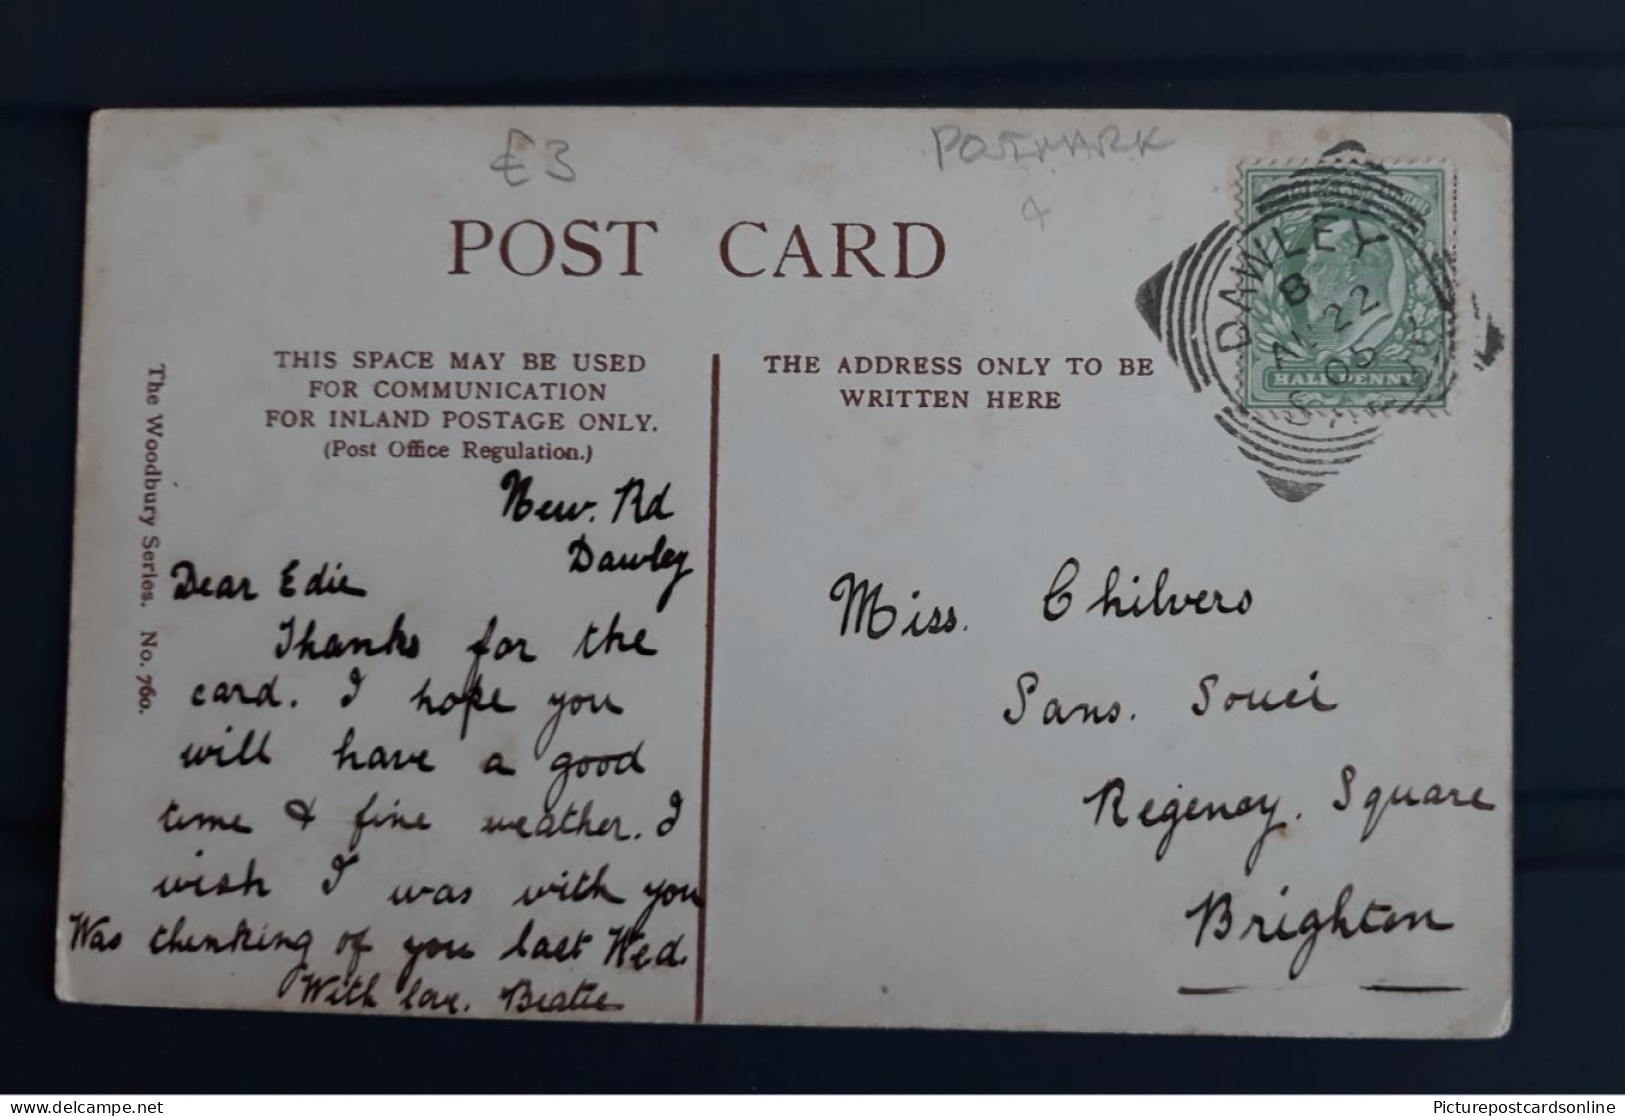 £3
POSTMARK
POST CARD
THIS SPACE MAY BE USED
FOR COMMUNICATION
FOR INLAND POSTAGE ONLY.
(Post Office Regulation.)
THE ADDRESS ONLY TO BE
WRITTEN HERE
The Woodbury Series. No. 760.
DAWLEY
B
AU 22
05
HALFPENNY
New. Rd
Dawley
Dear Edie
Thanks for the
card. I hope you
will have a good
time & fine weather. I
wish I was with you
Was thenking of you last Wed.
With love. Beatie
Miss. Chilvers
Sans. Souci
Regency. Square
Brighton
Picturepostcardsonline